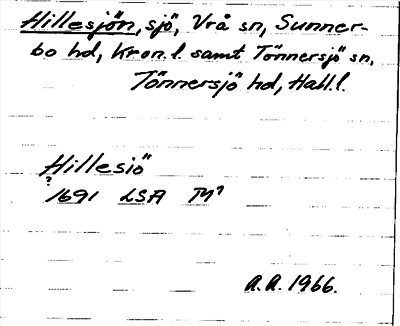 Hillesjön, sjö, Vrå sn, Sunner-
bo hd, Kron. l. samt Tönnersjö sn,
Tönnersjö hd, Hall. l.
Hillesiö
?
1691 LSA M⁷
A.A. 1966.